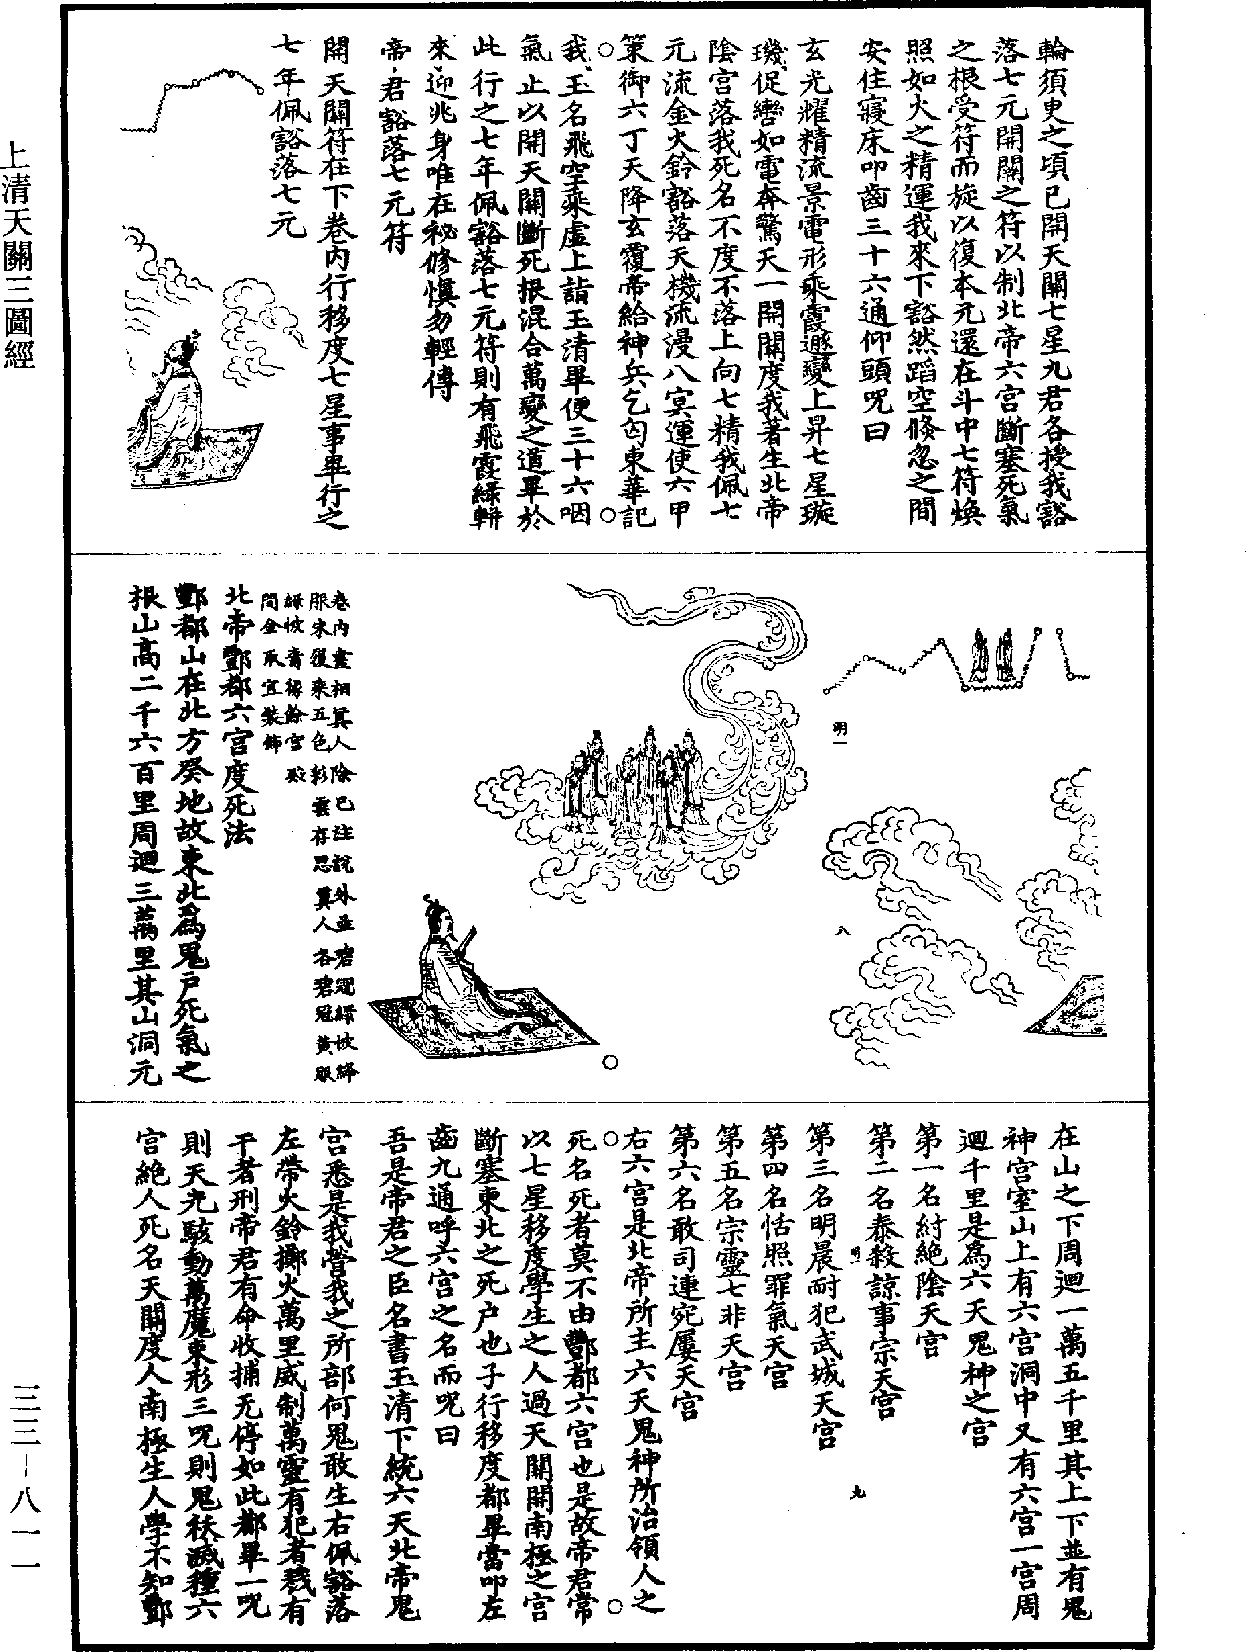 上清天關三圖經
三三—八一一
輪須臾之頃已開天關七星九君各授我豁
落七元開關之符以制北帝六宮斷塞死氣
之根受符而旋以復本元還在斗中七符煥
照如火之精運我來下豁然蹈空倏忽之間
安住寢床叩齒三十六通仰頭呪曰
玄光耀精流景電形乘霞遯變上昇七星璇
璣促轡如電奔驚天一開關度我著生北帝
陰宮落我死名不度不落上向七精我佩七
元流金火鈴豁落天機流漫八冥運使六甲
策御六丁天降玄覆帝給神兵乞匃東華記
我玉名飛空乘虛上詣玉清畢便三十六咽
氣止以開天關斷死根混合萬變之道畢於
此行之七年佩豁落七元符則有飛霞綠軿
來迎兆身唯在秘修慎勿輕傳
帝君豁落七元符
開天關符在下卷內行移度七星事畢行之
七年佩豁落七元
明一
八
卷內畫相真人除已注說外並碧冠綠帔絳
服朱履乘五色彩雲存思真人各碧冠黃服
綠帔青褥餘宮殿
間金取宜裝飾
北帝酆都六宮度死法
酆都山在北方癸地故東北為鬼戶死氣之
根山高二千六百里周迴三萬里其山洞元
在山之下周迴一萬五千里其上下並有鬼
神宮室山上有六宮洞中又有六宮一宮周
迴千里是為六天鬼神之宮
第一名紂絕陰天宮
第二名泰殺諒事宗天宮
明一
第三名明晨耐犯武城天宮
九
第四名恬照罪氣天宮
第五名宗靈七非天宮
第六名敢司連宛屢天宮
右六宮是北帝所主六天鬼神所治領人之
死名死者莫不由酆都六宮也是故帝君常
以七星移度學生之人過天關開南極之宮
斷塞東北之死戶也子行移度都畢當叩左
齒九通呼六宮之名而呪曰
吾是帝君之臣名書玉清下統六天北帝鬼
宮悉是我營我之所部何鬼敢生右佩豁落
左帶火鈴擲火萬里威制萬靈有犯者戮有
干者刑帝君有命收捕无停如此都畢一呪
則天光駭動萬魔束形三呪則鬼袄滅種六
宮絕人死名天關度人南極生人學不知酆